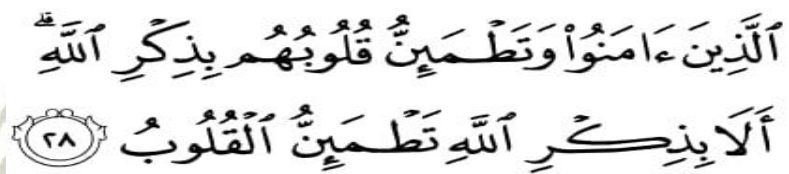 ٱلَّذِينَ ءَامَنُواْ وَتَطۡمَئِنُّ قُلُوبُهُم بِذِكۡرِ ٱللَّهِۗ
أَلَا بِذِكۡرِ ٱللَّهِ تَطۡمَئِنُّ ٱلۡقُلُوبُ ٢٨